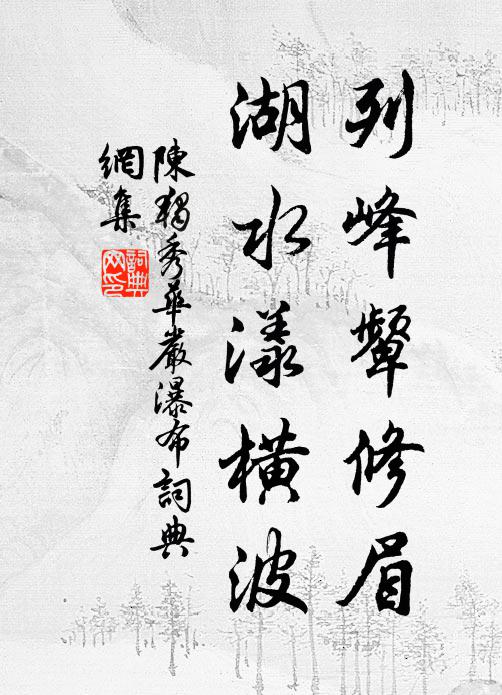 列峰顰修眉
湖水漾橫波
陳獨秀華嚴瀑布詞典
網集
詞典
网印